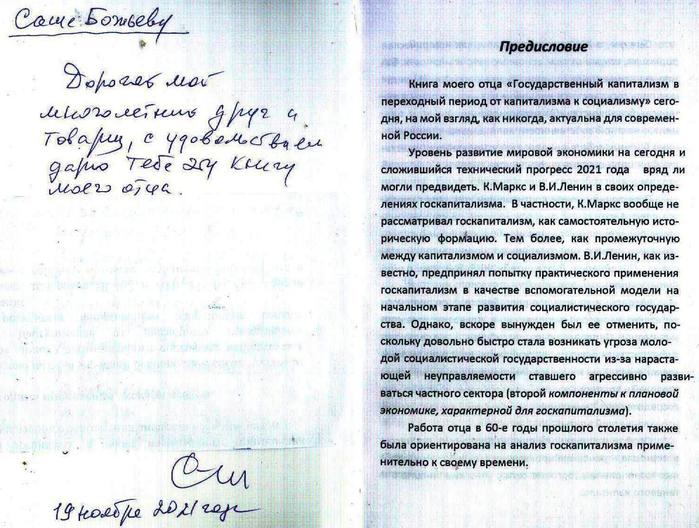 Саше Божьеву
Дорогой мой
многолетний друг и
товарищ, с удовольствием
дарю тебе эту книгу
моего отца.
19 ноября 2021 года
Предисловие
Книга моего отца «Государственный капитализм в
переходный период от капитализма к социализму» сего-
дня, на мой взгляд, как никогда, актуальна для современ-
ной России.
Уровень развитие мировой экономики на сегодня и
сложившийся технический прогресс 2021 года вряд ли
могли предвидеть. К.Маркс и В.И.Ленин в своих опреде-
лениях госкапитализма. В частности, К.Маркс вообще не
рассматривал госкапитализм, как самостоятельную исто-
рическую формацию. Тем более, как промежуточную
между капитализмом и социализмом. В.И.Ленин, как из-
вестно, предпринял попытку практического применения
госкапитализм в качестве вспомогательной модели на
начальном этапе развития социалистического государ-
ства. Однако, вскоре вынужден был ее отменить, по-
скольку довольно быстро стала возникать угроза моло-
дой социалистической государственности из-за нараста-
ющей неуправляемости ставшего агрессивно разви-
ваться частного сектора (второй компоненты к плановой
экономике, характерной для госкапитализма).
Работа отца в 60-е годы прошлого столетия также
была ориентирована на анализ госкапитализма приме-
нительно к своему времени.